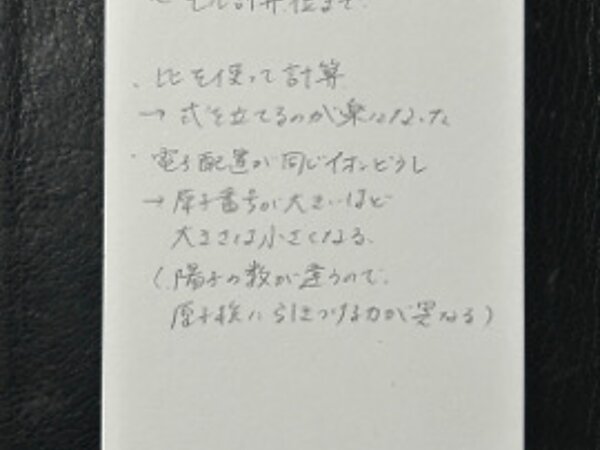 〜 モル計算位まで.
・比を使って計算
→ 式を立てるのが楽になった
・電子配置が同じイオンどうし
→ 原子番号が大きいほど
大きさは小さくなる、
(陽子の数が違うので、
原子核に引きつける力が異なる)